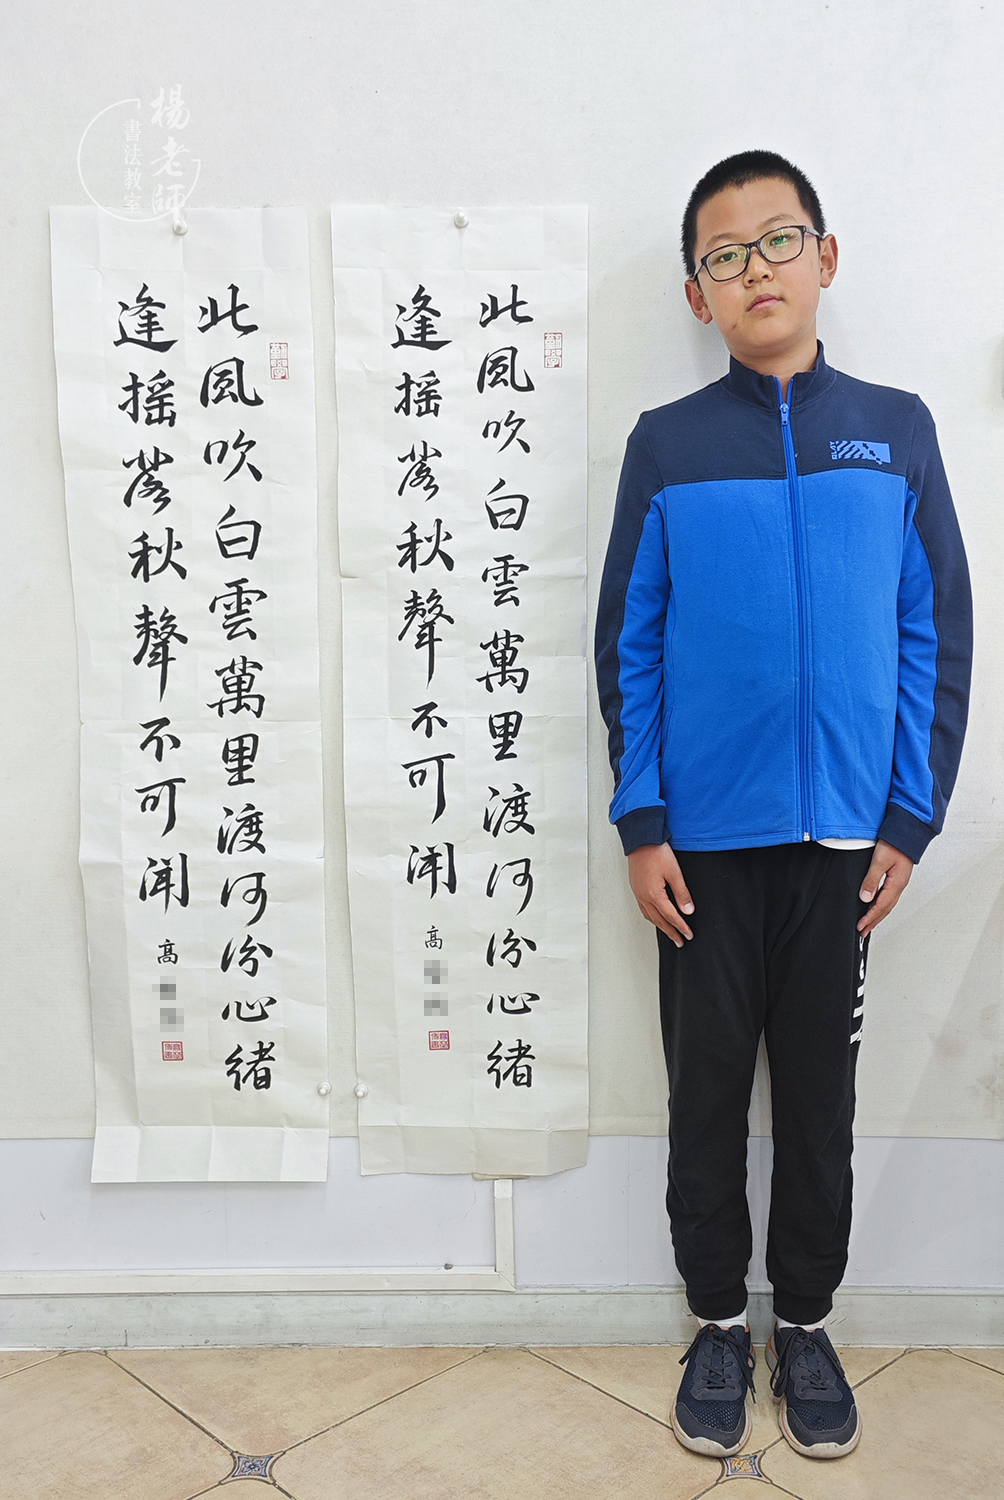 楊老師
書法教室
北風吹白雲萬里渡河汾心緒
逢搖落秋聲不可聞
高
北風吹白雲萬里渡河汾心緒
逢搖落秋聲不可聞
高